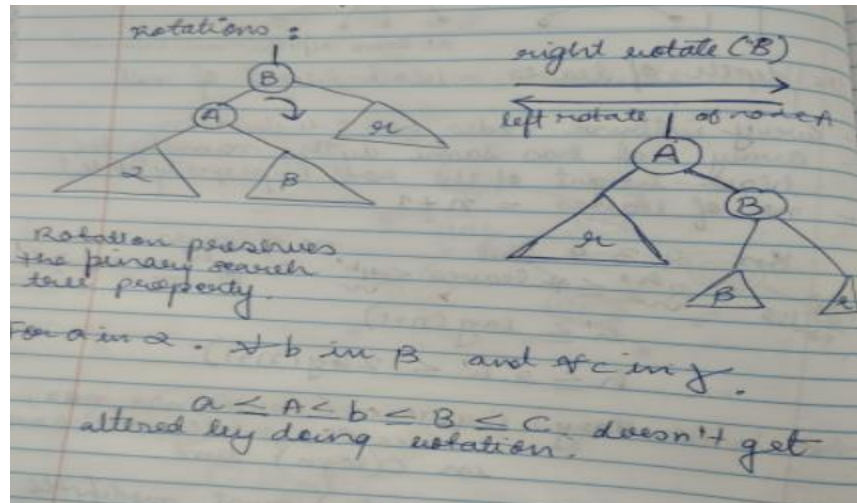 rotations :
right rotate (B)
left rotate of node A
B
A
r
α
β
A
B
r
β
Rotation preserves
the binary search
tree property.
For a in α . ∀ b in β and ∀ c in γ .
a ≤ A ≤ b ≤ B ≤ C doesn't get
altered by doing rotation.